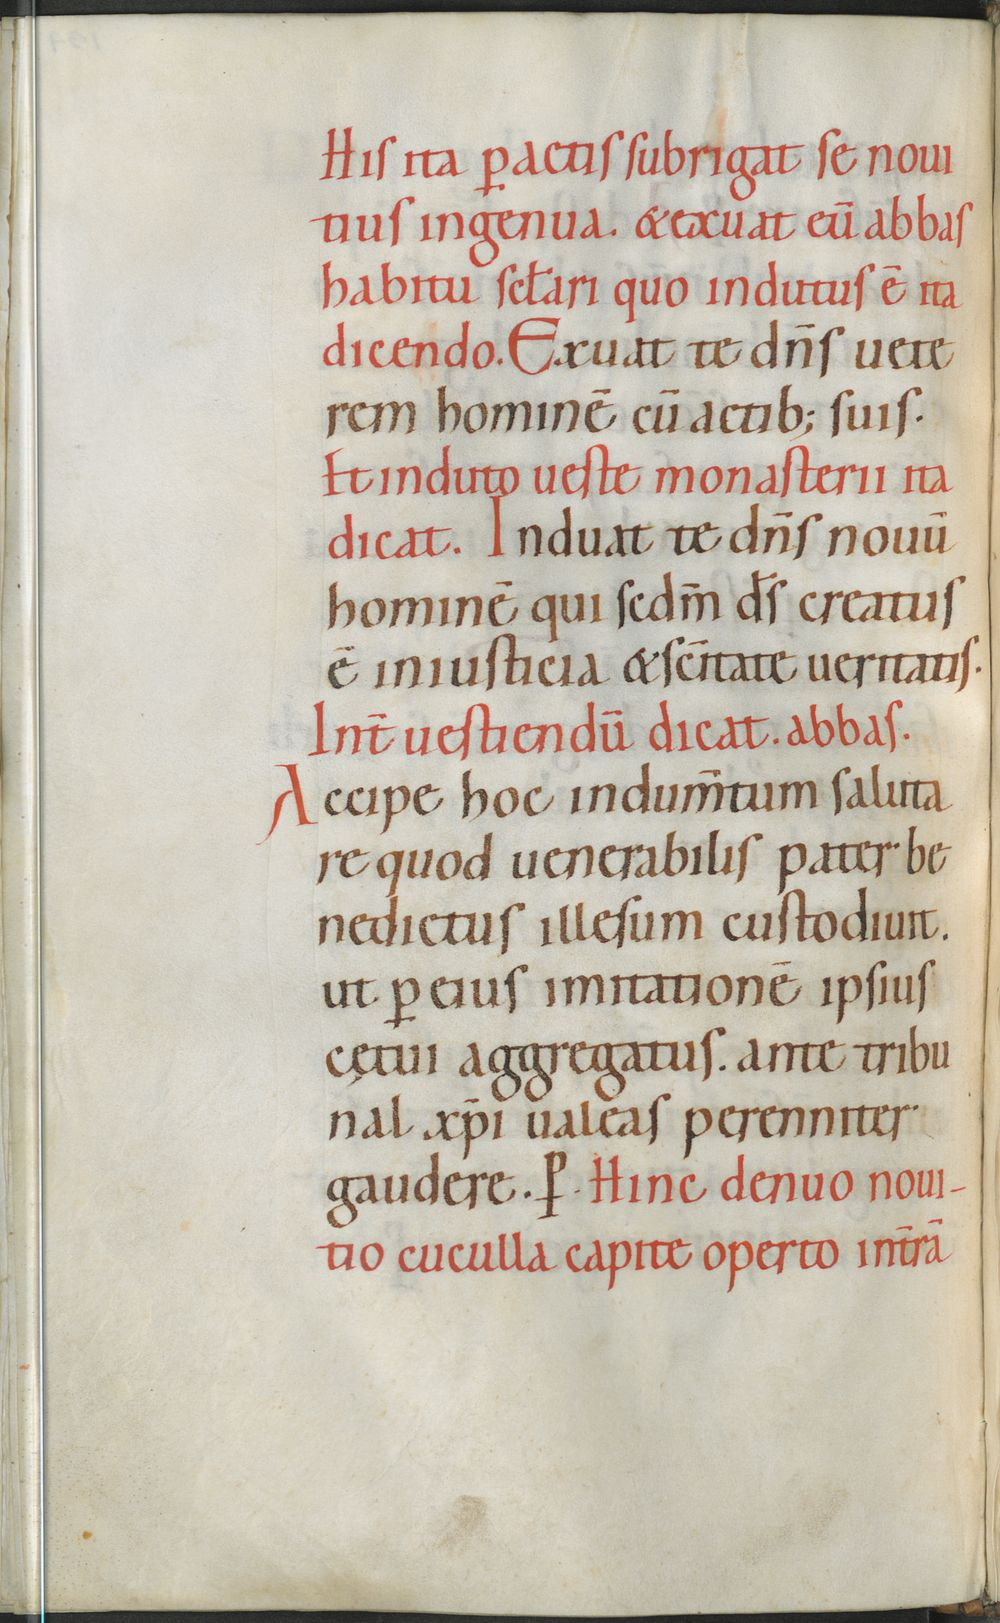 His ita ꝑactis subrigat se noui
tius ingenua. &exuat eū abbas
habitu scłari quo indutus ē ita
dicendo. Exuat te dn̄s uete
rem hominē cū actib; suis.
Et induto ueste monasterii ita
dicat. Induat te dn̄s nouū
hominē qui scdm̄ ds̄ creatus
ē iniusticia &sc̄itate ueritatis.
Int̄ uestiendū dicat. abbas.
Accipe hoc indum̄tum saluta
re quod uenerabilis pater be
nedictus illesum custodiuit.
ut ꝑ eius imitationē ipsius
cętui aggregatus. ante tribu
nal xp̄i ualeas perenniter
gaudere. P. Hinc denuo noui-
tio cuculla capite operto int̄rā